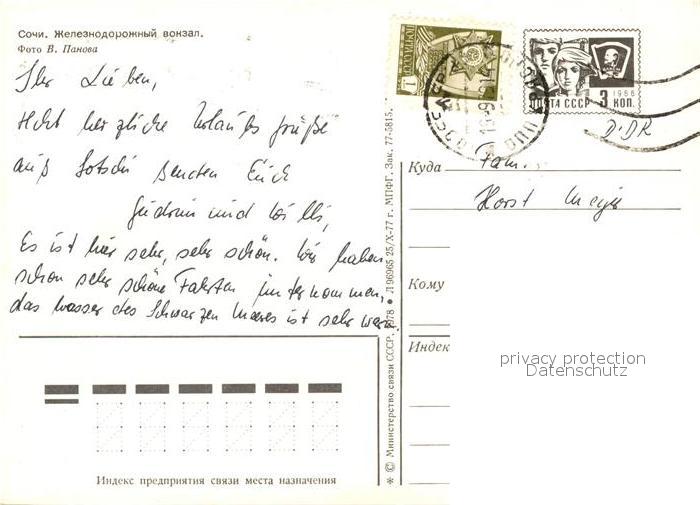 Сочи. Железнодорожный вокзал.
Фото В. Панова
Ihr Lieben,
Recht herzliche Urlaubsgrüße
aus Sotschi senden Euch
Gudrun und Willi,
Es ist hier sehr, sehr schön. Wir haben
schon sehr schöne Fahrten unternommen,
das Wasser des Schwarzen Meeres ist sehr warm.
Индекс предприятия связи места назначения
* © Министерство связи СССР, 1978 ● Л96965 25/X-77 г. МПФГ. Зак. 77-5815.
ПОЧТА СССР
1
1966
ПОЧТА СССР 3 КОП.
DDR
Куда Fam.
Horst
Кому
Индекс
privacy protection
Datenschutz